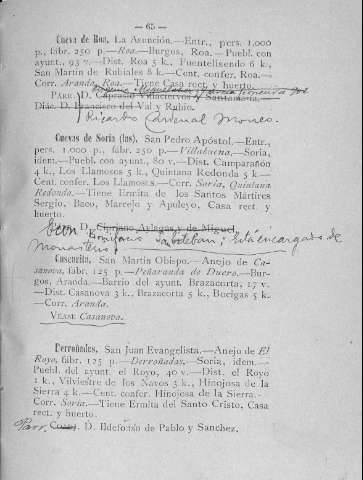 — 65 —
Cueva de Roa, La Asunción.—Entr., pers. 1.000
p., fábr. 250 p.—Roa.—Burgos, Roa.—Puebl. con
ayunt., 93 v.—Dist. Roa 5 k., Fuentelisendo 6 k.,
San Martin de Rubiales 8 k.—Cent. confer. Roa.—
Corr. Aranda, Roa.—Tiene Casa rect. y huerto.
PÁRR. D. Caprasio Villaciervos y Santamaría.
Diác. D. Francisco del Val y Rubio.
Ricardo Cardenal Moneo.
Cuevas de Soria (las), San Pedro Apóstol.—Entr.,
pers. 1.000 p., fábr. 250 p.—Villabuena.—Soria,
idem.—Puebl. con ayunt., 80 v.—Dist. Camparañon
4 k., Los Llamosos 5 k., Quintana Redonda 5 k.—
Cent. confer. Los Llamosos.—Corr. Soria, Quintana
Redonda.—Tiene Ermita de los Santos Mártires
Sergio, Baco, Marcelo y Apuleyo, Casa rect. y
huerto.
Ecón D. Cipriano Aylagas y de Miguel.
Bonifacio Sanesteban; Está encargado de
Monasterio
Cuscurita, San Martin Obispo.—Anejo de Ca-
sanova, fábr. 125 p.—Peñaranda de Duero.—Bur-
gos, Aranda.—Barrio del ayunt. Brazacorta, 17 v.
—Dist. Casanova 3 k., Brazacorta 5 k., Bucigas 5 k.
—Corr. Aranda.
VÉASE Casanova.
Derroñadas, San Juan Evangelista.—Anejo de El
Royo, fábr. 125 p.—Derroñadas.—Soria, idem.—
Puebl. del ayunt. el Royo, 40 v.—Dist. el Royo
1 k., Vilviestre de los Navos 3 k., Hinojosa de la
Sierra 4 k.—Cent. confer. Hinojosa de la Sierra.—
Corr. Soria.—Tiene Ermita del Santo Cristo, Casa
rect. y huerto.
Parr. D. Ildefonso de Pablo y Sanchez.